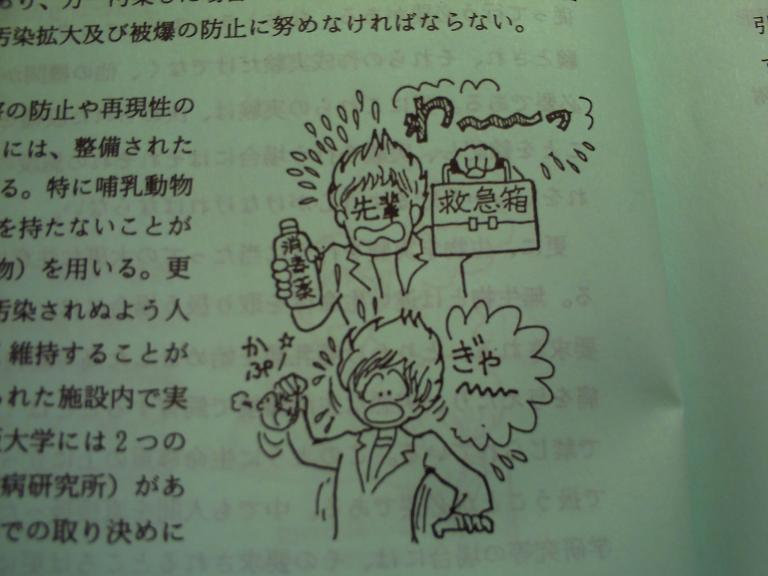 汚染拡大及び被爆の防止に努めなければならない。
の防止や再現性の
には、整備された
る。特に哺乳動物
を持たないことが
物）を用いる。更
汚染されぬよう人
維持することが
られた施設内で実
大学には2つの
病研究所）があ
での取り決めに
わ～～～っ
先輩
救急箱
消毒薬
かぷ!
ぎゃ～～
引